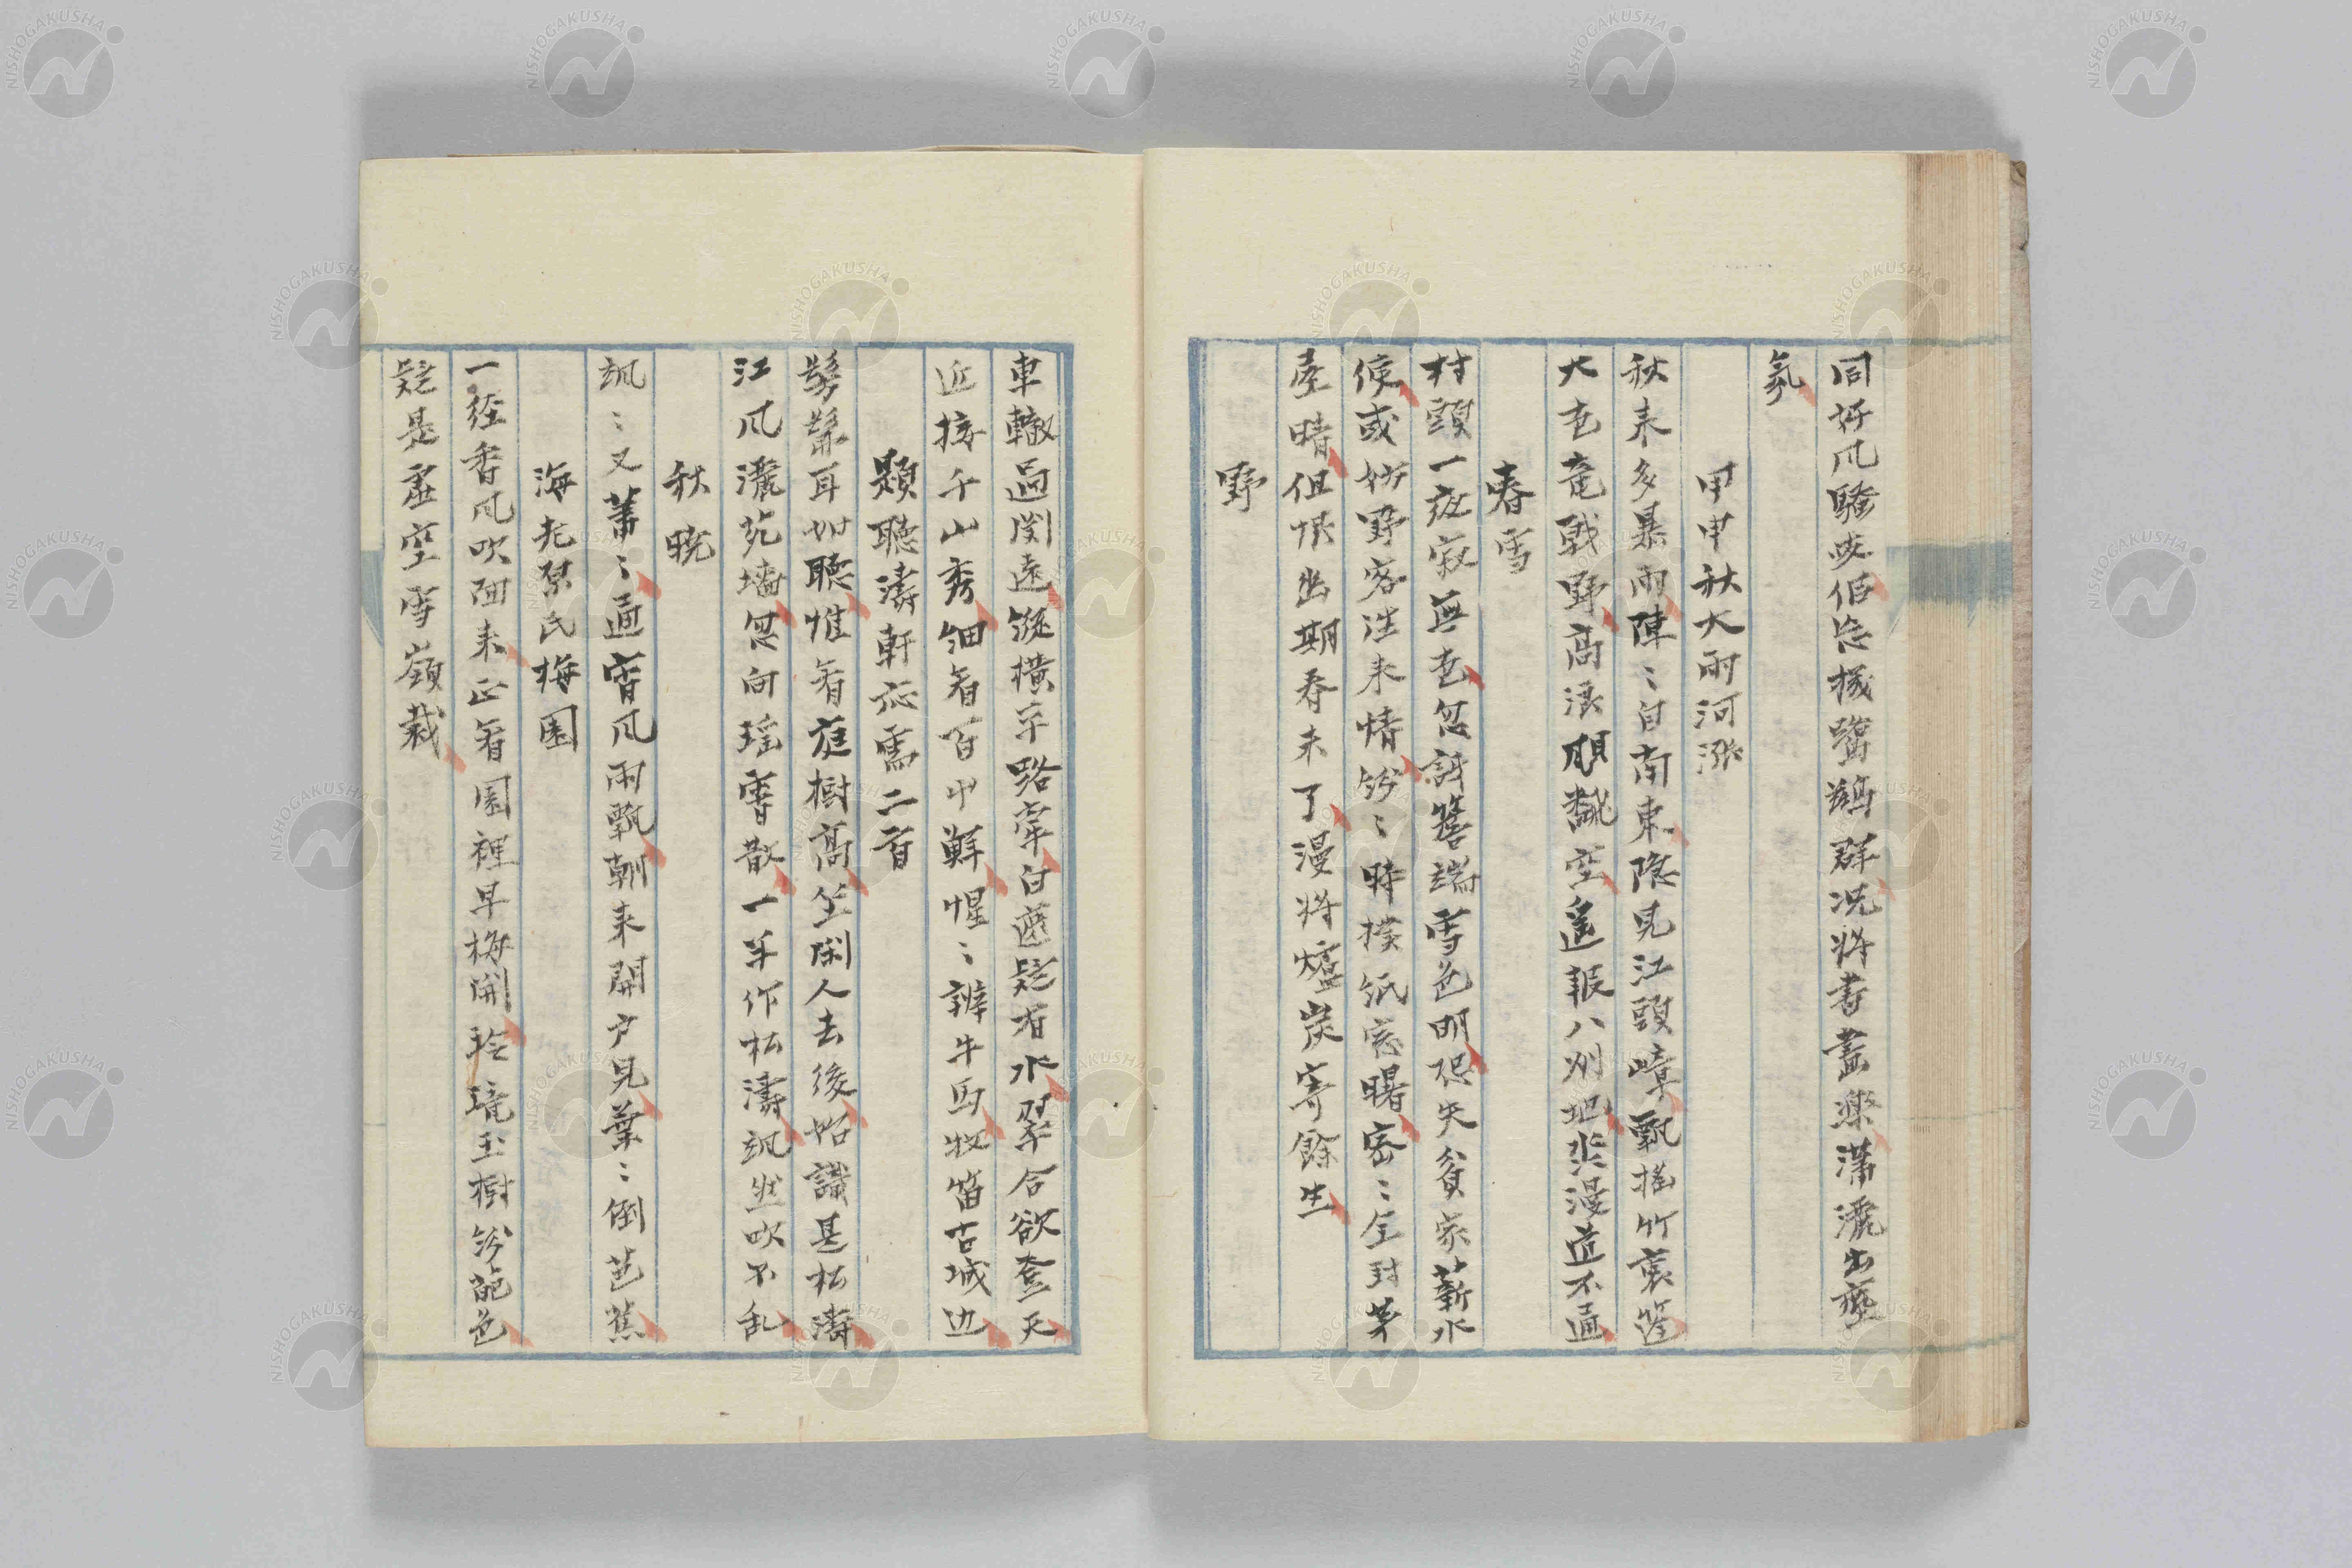 同好風騒興佰忘機鷺鶴群况将書畫楽瀟灑出塵
氛
甲申秋大雨河漲
秋来多暴雨陣〻自南東隐見江頭嶂飄揺竹裏篷
大声竜戦野高浪颿翻空遙報八州地渺漫道不通
春雪
村頭一夜寂無声忽訝簷端雪色明恐失貧家薪水
候或妨野客往来情紛〻時撲紙窓曙密〻全封茅
屋晴但恨出期春未了漫将爐炭寄餘生
野
車轍過関遠縦横平路牽白遶疑有水翠合欲登天
近接千山秀細看百中鮮惺〻辨牛馬牧笛古城辺
題聴濤軒応需二首
髣髴耳如聴惟看庭樹高坐閑人去後始識是松濤
江風灑苑墻忽向瑶雲散一半作松濤颯然吹不乱
秋暁
颯〻又蕭〻通宵風雨飄朝来開戸見葉〻倒芭蕉
海老原氏梅園
一経香風吹面来正看園裡早梅開玲瓏玉樹紛葩色
疑是虚空雪嶺裁
NISHOGAKUSHA